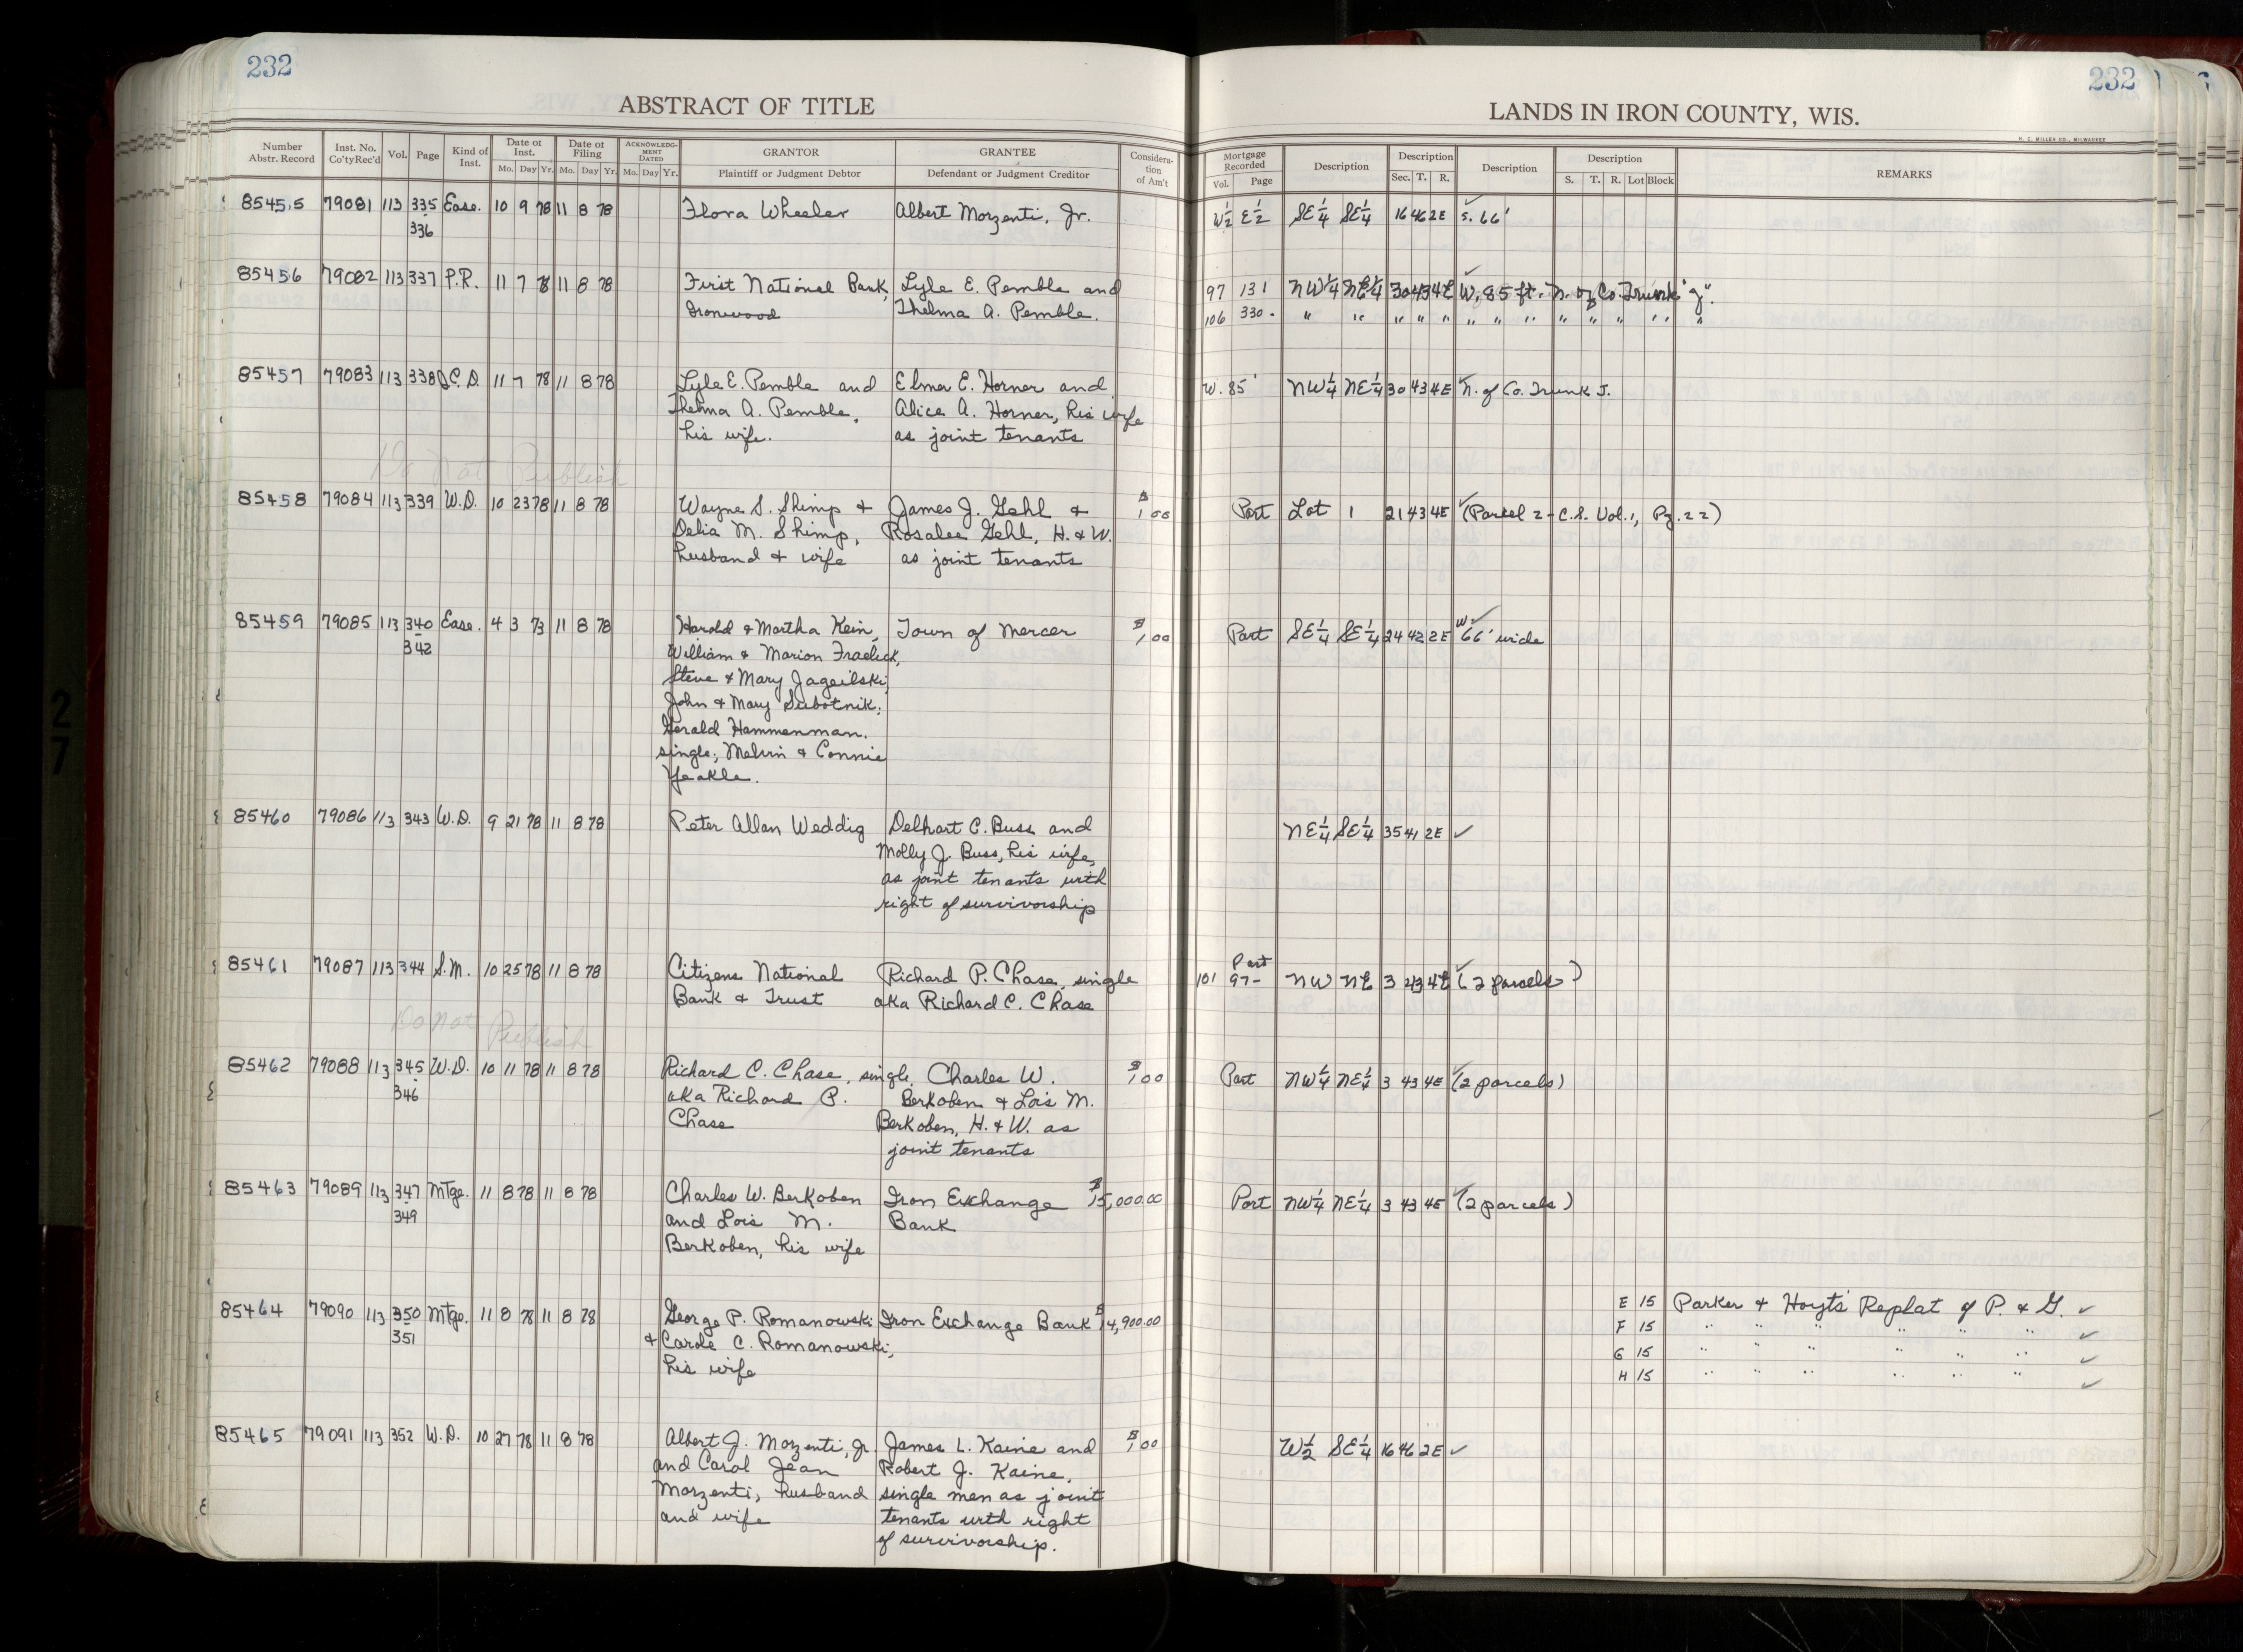 232
232
ABSTRACT OF TITLE
LANDS IN IRON COUNTY, WIS.
H. C. MILLER CO., MILWAUKEE
Number Abstr. Record Inst. No. Co'ty Rec'd Vol. Page Kind of Inst. Date of Inst. Mo. Day Yr. Date of Filing Mo. Day Yr. ACKNOWLEDGMENT DATED Mo. Day Yr. GRANTOR Plaintiff or Judgment Debtor GRANTEE Defendant or Judgment Creditor Consideration of Am't Mortgage Recorded Vol. Page Description Description Sec. T. R. Description Description S. T. R. Lot Block REMARKS
85455 79081 113 335 Ease. 10 9 78 11 8 78 Flora Wheeler Albert Morzenti, Jr. W½ E½ SE¼ SE¼ 16 46 2E S. 66'
336
85456 79082 113 337 P.R. 11 7 78 11 8 78 First National Bank, Lyle E. Pemble and 97 131 NW¼ NE¼ 30 43 4E W. 85 ft. N. of Co. Trunk "J".
Ironwood Thelma A. Pemble. 106 330 - " " " " " " " " " " " " "
85457 79083 113 338 Q.C.D. 11 7 78 11 8 78 Lyle E. Pemble and Elmer E. Horner and W. 85' NW¼ NE¼ 30 43 4E N. of Co. Trunk J.
Thelma A. Pemble, Alice A. Horner, his wife
his wife. as joint tenants
Do Not Publish
85458 79084 113 339 W.D. 10 23 78 11 8 78 Wayne S. Shimp & James J. Gehl & $1.00 Part Lot 1 21 43 4E (Parcel 2 - C.S. Vol. 1, Pg. 22)
Delia M. Shimp, Rosalee Gehl, H. & W.
husband & wife as joint tenants
85459 79085 113 340 Ease. 4 3 73 11 8 78 Harold & Martha Kein, Town of Mercer $1.00 Part SE¼ SE¼ 24 42 2E W. 66' wide
342 William & Marion Fraelick,
Steve & Mary Jageilski;
John & Mary Subotnik;
Gerald Hammenman.
single; Melvin & Connie
Yeakle.
85460 79086 113 343 W.D. 9 21 78 11 8 78 Peter Allan Weddig Delhart C. Buss and NE¼ SE¼ 35 41 2E ✓
Molly J. Buss, his wife,
as joint tenants with
right of survivorship
85461 79087 113 344 S.M. 10 25 78 11 8 78 Citizens National Richard P. Chase, single 101 97- Part NW NE 3 43 4E (2 parcels)
Bank & Trust aka Richard C. Chase
Do Not Publish
85462 79088 113 345 W.D. 10 11 78 11 8 78 Richard C. Chase, single, Charles W. $1.00 Part NW¼ NE¼ 3 43 4E (2 parcels)
346 aka Richard P. Berkoben & Lois M.
Chase Berkoben, H. & W. as
joint tenants
85463 79089 113 347 Mtge. 11 8 78 11 8 78 Charles W. Berkoben Iron Exchange $15,000.00 Part NW¼ NE¼ 3 43 4E (2 parcels)
349 and Lois M. Bank
Berkoben, his wife
85464 79090 113 350 Mtge. 11 8 78 11 8 78 George P. Romanowski Iron Exchange Bank $14,900.00 E 15 Parker & Hoyt's Replat of P. & G. ✓
351 & Carole C. Romanowski, F 15 " " " " " " ✓
his wife G 15 " " " " " " ✓
H 15 " " " " " " ✓
85465 79091 113 352 W.D. 10 27 78 11 8 78 Albert J. Morzenti, Jr. James L. Kaine and $1.00 W½ SE¼ 16 46 2E ✓
and Carol Jean Robert J. Kaine,
Morzenti, husband single men as joint
and wife tenants with right
of survivorship.